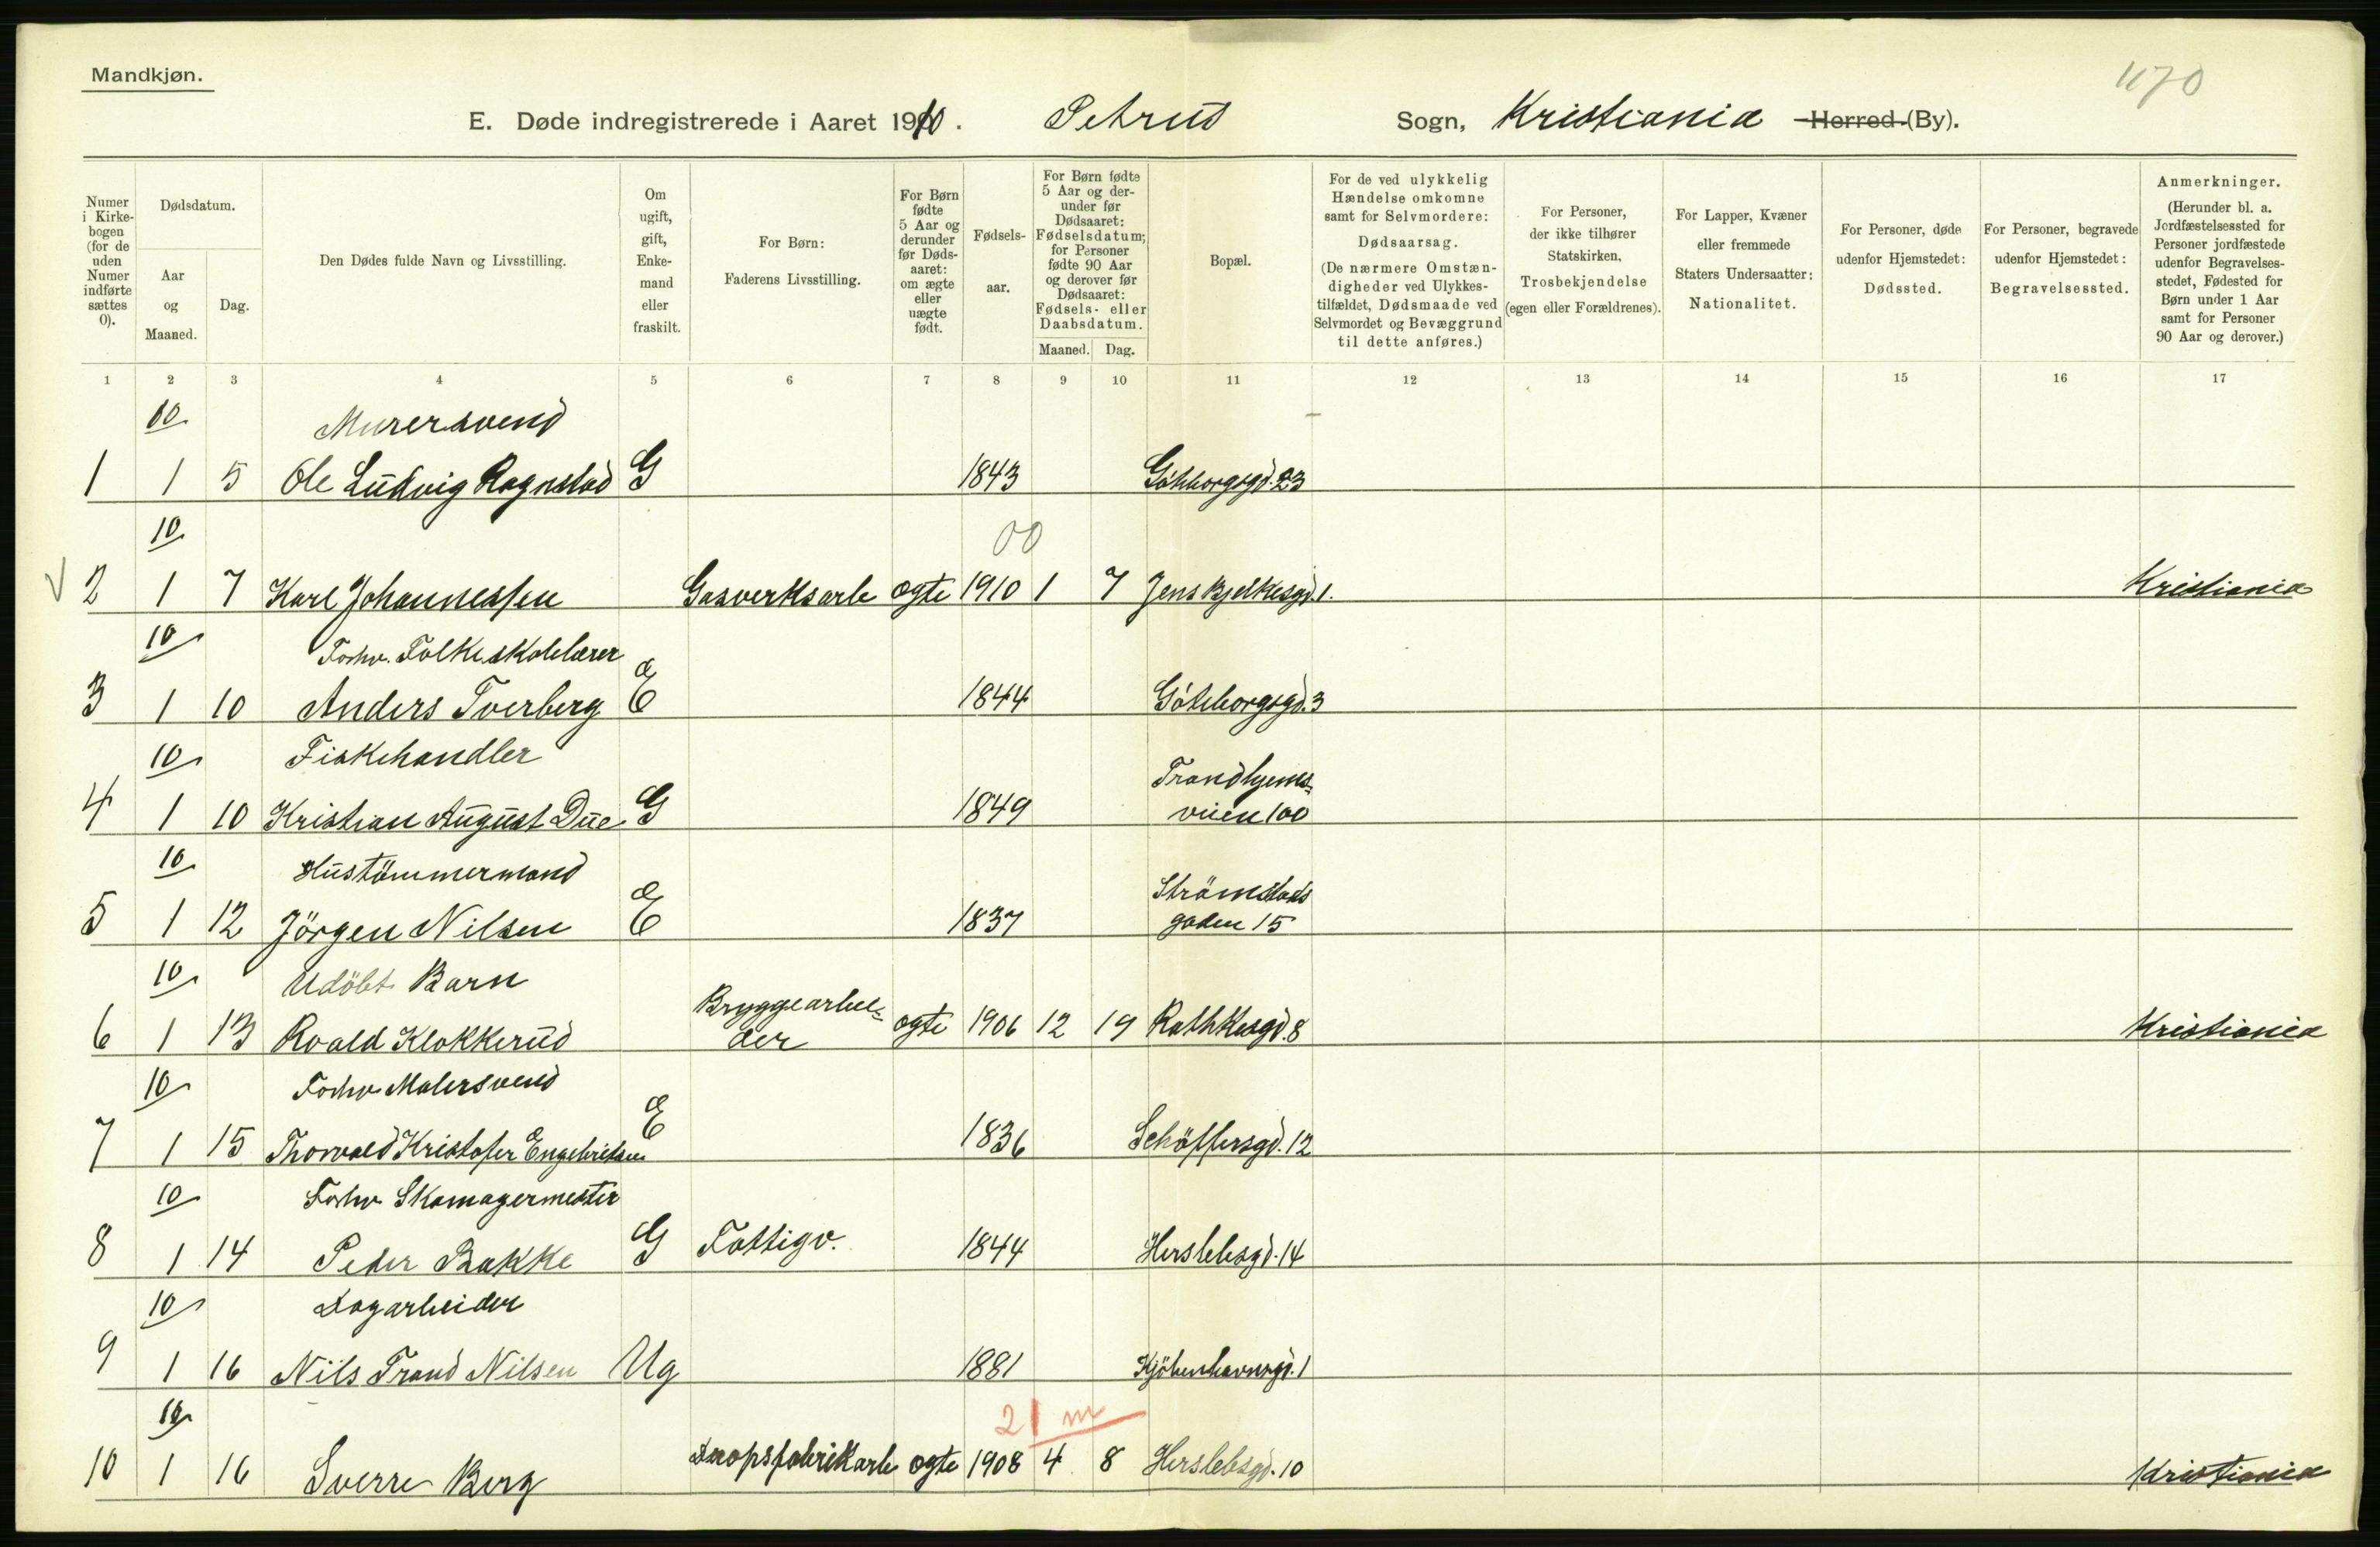 Mandkjøn.
1170
E. Døde indregistrerede i Aaret 1910. Petrus Sogn, Kristiania Herred (By).
Numer i Kirkebogen (for de uden Numer indførte sættes 0).
Dødsdatum.
Aar og Maaned.
Dag.
Den Dødes fulde Navn og Livsstilling.
Om ugift, gift, Enkemand eller fraskilt.
For Børn: Faderens Livsstilling.
For Børn fødte 5 Aar og derunder før Dødsaaret: om ægte eller uægte født.
Fødselsaar.
For Børn fødte 5 Aar og derunder før Dødsaaret: Fødselsdatum; for Personer fødte 90 Aar og derover før Dødsaaret: Fødsels- eller Daabsdatum.
Maaned. Dag.
Bopæl.
For de ved ulykkelig Hændelse omkomne samt for Selvmordere: Dødsaarsag. (De nærmere Omstændigheder ved Ulykkestilfældet, Dødsmaade ved Selvmordet og Bevæggrund til dette anføres.)
For Personer, der ikke tilhører Statskirken, Trosbekjendelse (egen eller Forældrenes).
For Lapper, Kvæner eller fremmede Staters Undersaatter: Nationalitet.
For Personer, døde udenfor Hjemstedet: Dødssted.
For Personer, begravede udenfor Hjemstedet: Begravelsessted.
Anmerkninger. (Herunder bl. a. Jordfæstelsessted for Personer jordfæstede udenfor Begravelsesstedet, Fødested for Børn under 1 Aar samt for Personer 90 Aar og derover.)
1 2 3 4 5 6 7 8 9 10 11 12 13 14 15 16 17
10 Murersvend
1 1 5 Ole Ludvig Rognstad G 1843 Göteborgsgd. 23
10 00
2 1 7 Karl Johannessen Gasverksarb ægte 1910 1 7 Jens Bjelkesgd. 1. Kristiania
10 Forhv. Folkeskolelærer
3 1 10 Anders Tverberg E 1844 Göteborgsgd. 3
10 Fiskehandler Trondhjems-
4 1 10 Kristian August Due G 1849 veien 100
10 Hustömmermand Strömstads
5 1 12 Jörgen Nilsen E 1837 gaden 15
10 Udöbt Barn Bryggearbei-
6 1 13 Roald Klokkerud der ægte 1906 12 19 Rathkesgd. 8 Kristiania
10 Forhv Malersvend
7 1 15 Thorvald Kristofer Engebretsen E 1836 Schöffersgd. 12
10 Forhv Skomagermester
8 1 14 Peder Bakke G Fattigv. 1844 Herslebsgd. 14
10 Dagarbeider
9 1 16 Nils Trond Nilsen Ug 1881 Kjöbenhavnsgd. 1
10 21 m
10 1 16 Sverre Berg Dropsfabrikarb ægte 1908 4 8 Herslebsgd. 10 Kristiania